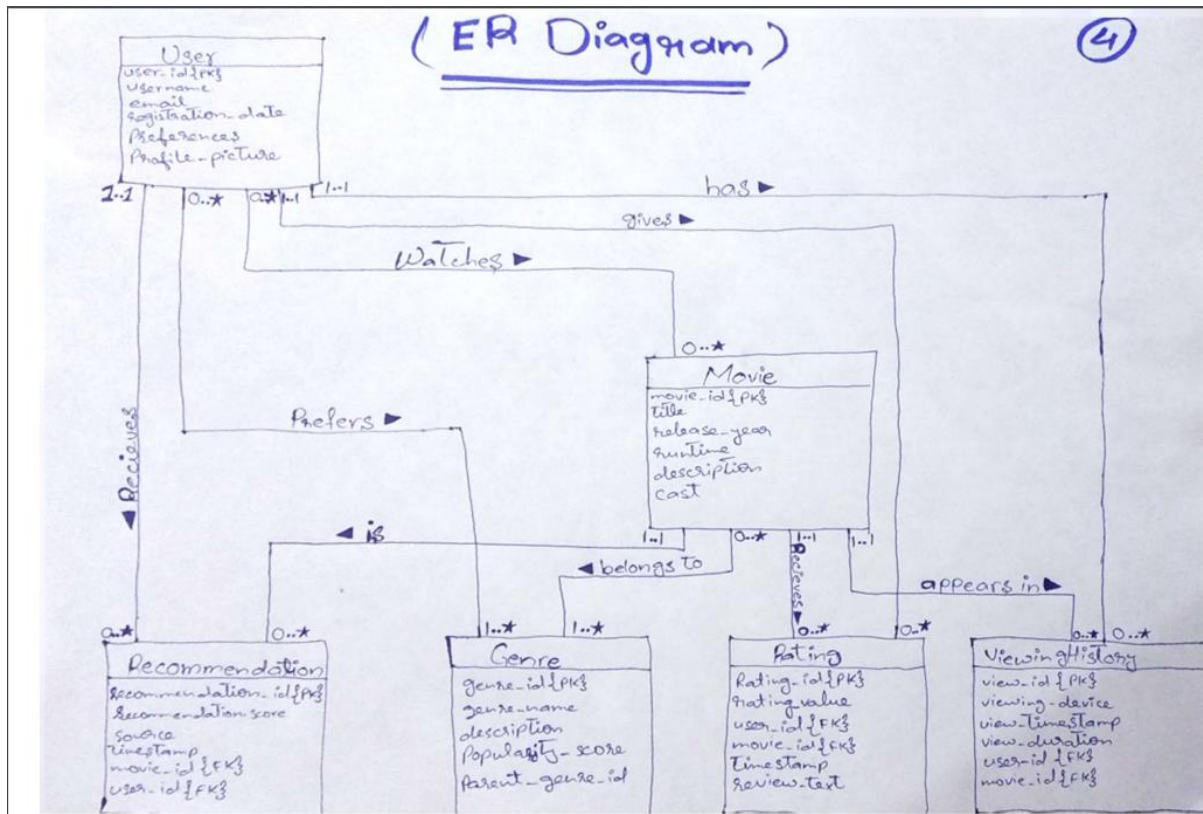 (ER Diagram)
4
User
user-id{PK}
username
email
registration-date
Preferences
Profile-picture
1..1
0..*
0..*
1..1
1..1
has ►
gives ►
Watches ►
Prefers ►
◄ Recieves
0..*
Movie
movie-id{PK}
title
release-year
runtime
description
cast
1..1
0..*
1..1
1..1
◄ is
◄ belongs to
Recieves ►
appears in ►
0..*
0..*
1..*
1..*
0..*
0..*
0..*
0..*
Recommendation
recommendation-id{PK}
recommendation-score
source
timestamp
movie-id{FK}
user-id{FK}
Genre
genre-id{PK}
genre-name
description
Popularity-score
Parent-genre-id
Rating
Rating-id{PK}
rating-value
user-id{FK}
movie-id{FK}
Timestamp
review-text
ViewingHistory
view-id{PK}
viewing-device
view-timestamp
view-duration
user-id{FK}
movie-id{FK}